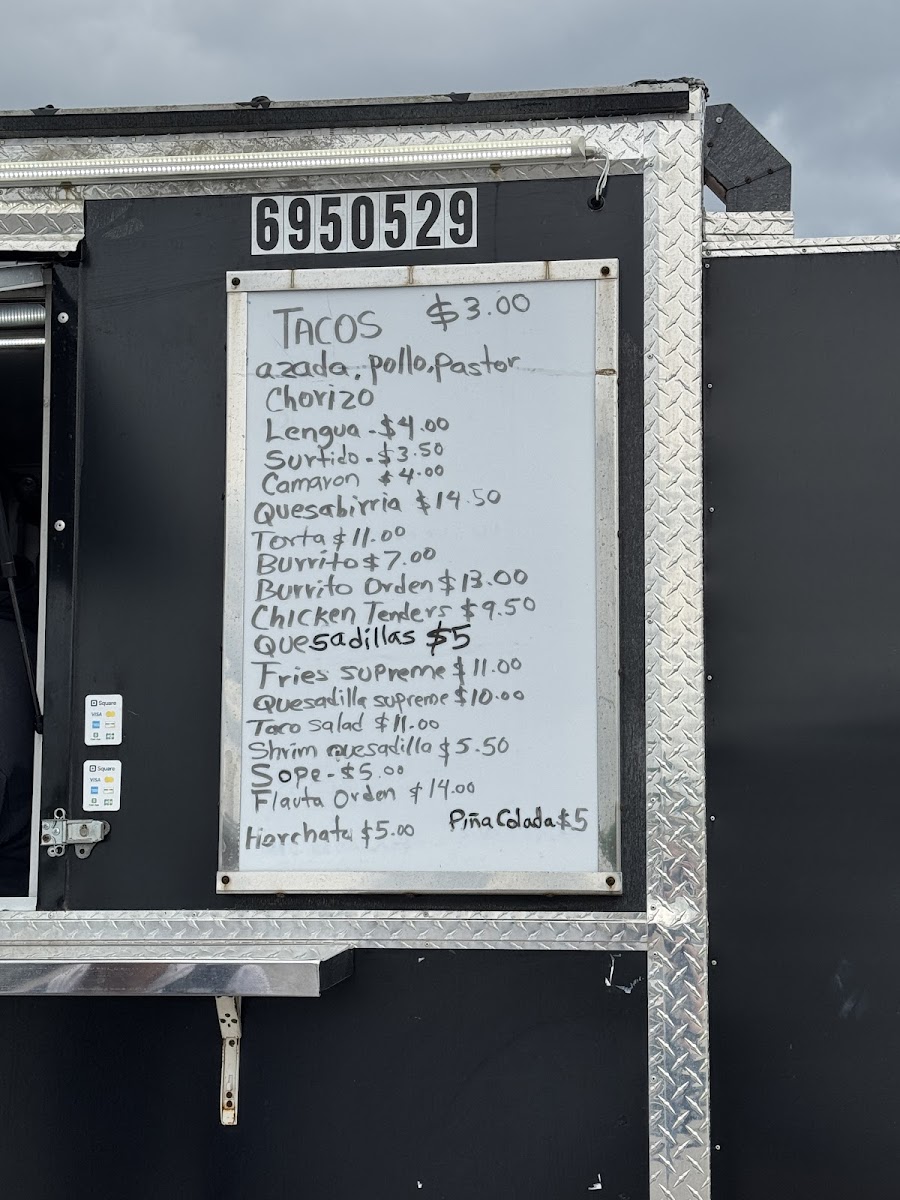 6950529
TACOS $3.00
azada, pollo, Pastor
Chorizo
Lengua - $4.00
Surtido - $3.50
Camaron $4.00
Quesabirria $14.50
Torta $11.00
Burrito $7.00
Burrito Orden $13.00
Chicken Tenders $9.50
Quesadillas $5
Fries supreme $11.00
Quesadilla supreme $10.00
Taco salad $11.00
Shrim quesadilla $5.50
Sope - $5.00
Flauta Orden $14.00
Horchata $5.00 Piña Colada $5
Square
VISA
Square
VISA